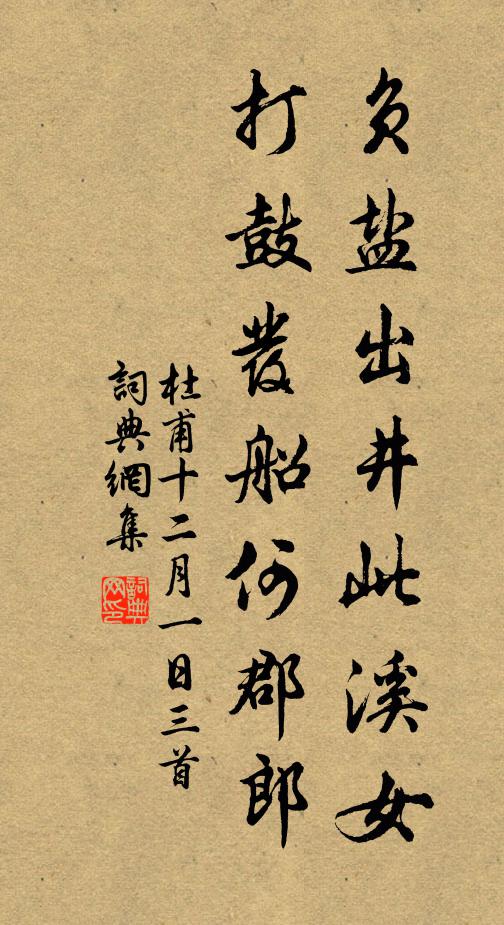 负盐出井此溪女
打鼓发船何郡郎
杜甫十二月一日三首
詞典網集
詞典网印